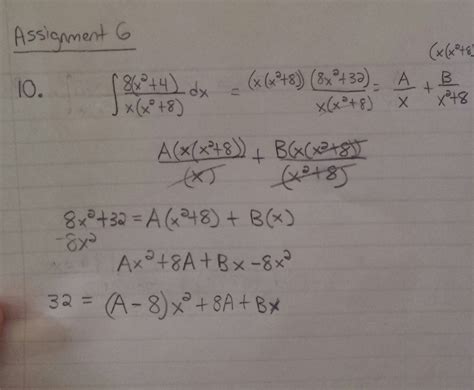 Assignment 6
(x(x²+8)
10. ∫ 8(x²+4)/x(x²+8) dx = (x(x²+8)) (8x²+32)/x(x²+8) = A/x + B/x²+8
A(x(x²+8))/(x) + B(x(x²+8))/(x²+8)
8x²+32 = A(x²+8) + B(x)
-8x²
Ax²+8A+Bx-8x²
32 = (A-8)x²+8A+Bx